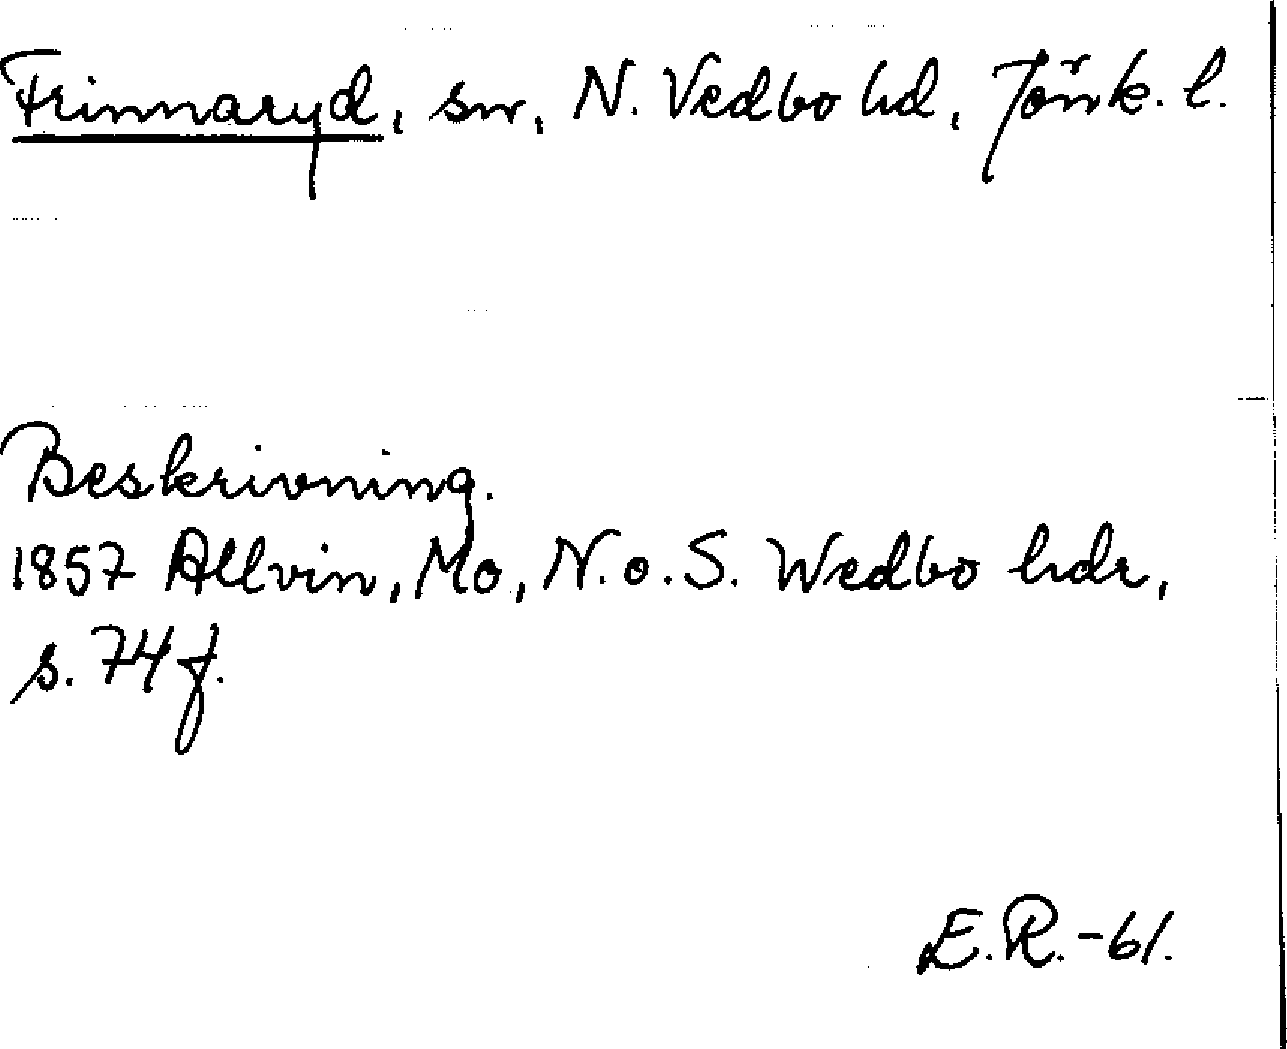 Frinnaryd, sn, N. Vedbo hd, Jönk. l.
Beskrivning.
1857 Allvin, Mo, N. o. S. Wedbo hdr,
s. 74 f.
E.R.-61.